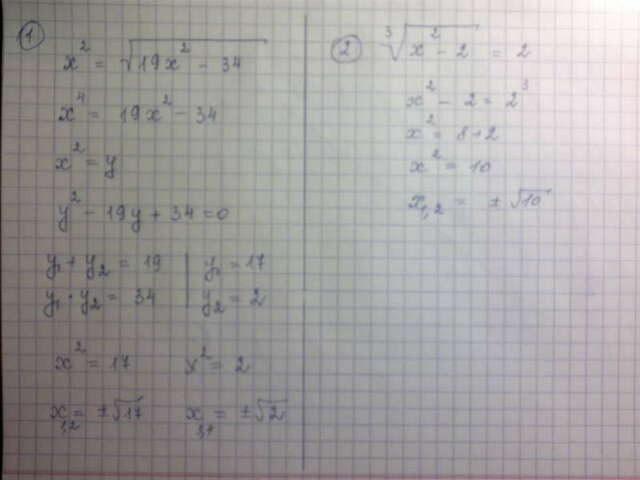 1
x² = √19x² - 34
x⁴ = 19x² - 34
x² = y
y² - 19y + 34 = 0
y₁ + y₂ = 19 | y₁ = 17
y₁ · y₂ = 34 | y₂ = 2
x² = 17 x² = 2
x₁,₂ = ±√17 x₃,₄ = ±√2
2 ³√x² - 2 = 2
x² - 2 = 2³
x² = 8 + 2
x² = 10
x₁,₂ = ±√10